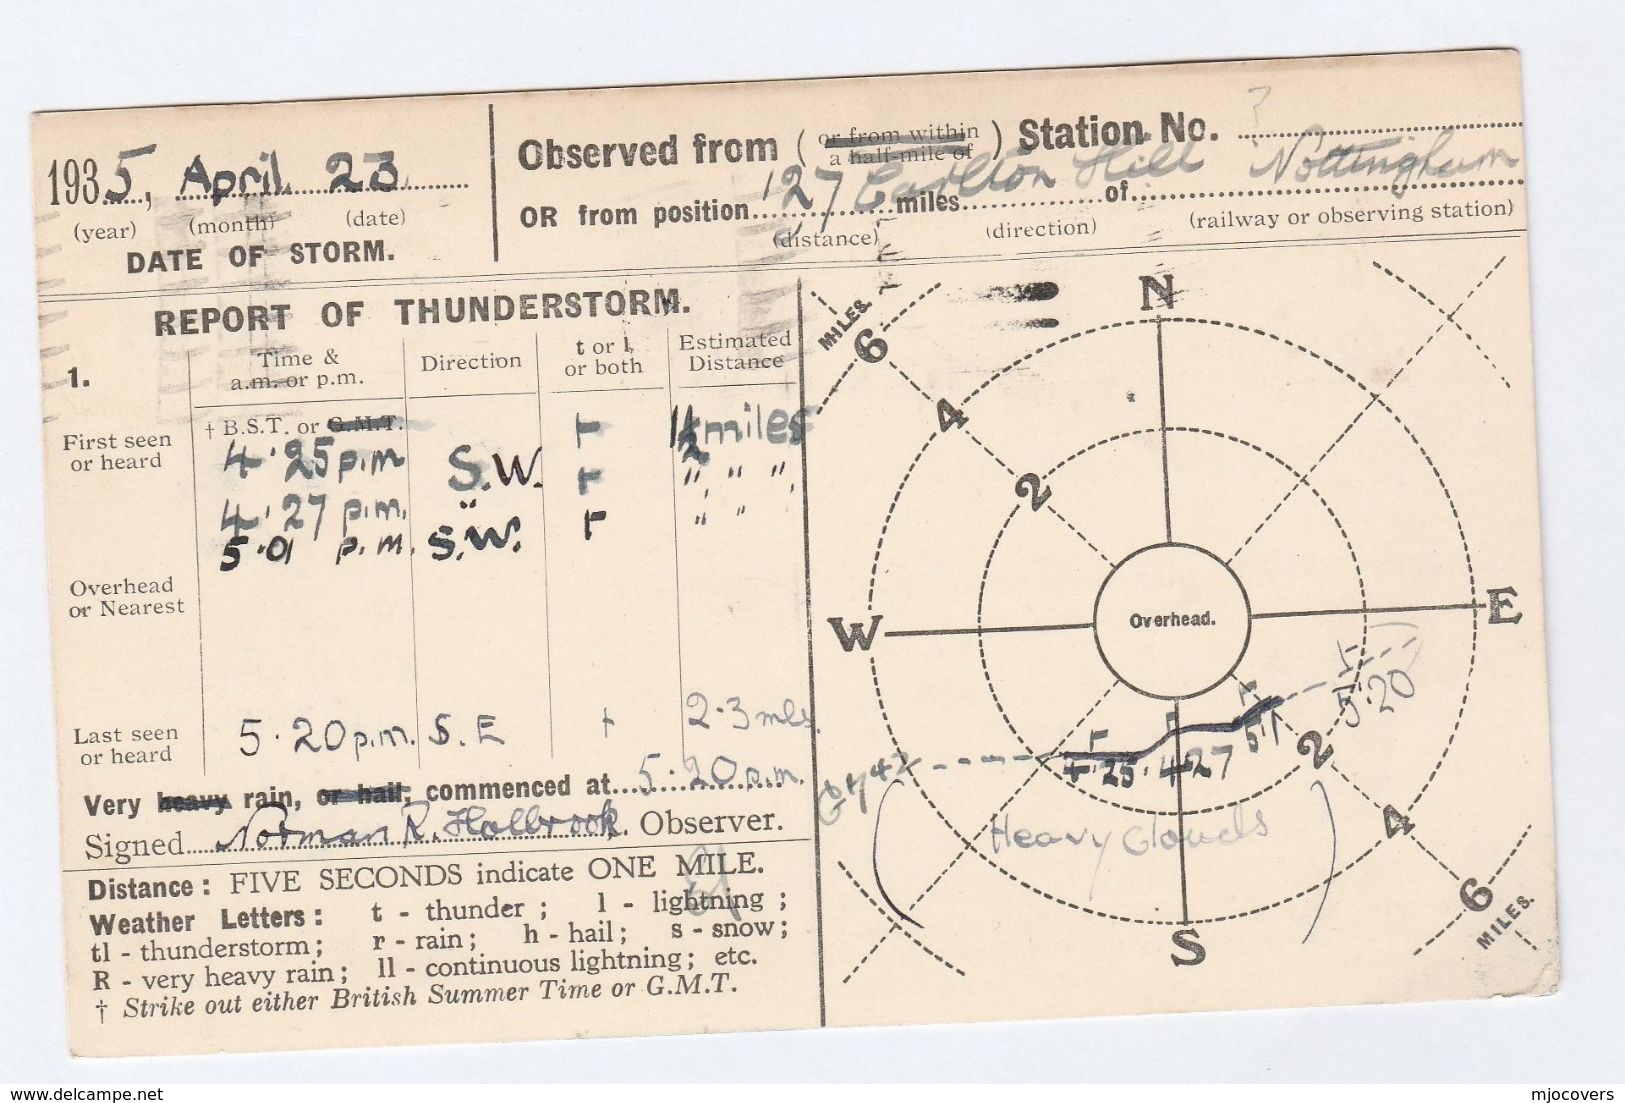 1935, April 23
(year) (month) (date)
DATE OF STORM.
Observed from (or from within a half-mile of) Station No. ?
127 Carlton Hill Nottingham
OR from position miles of
(distance) (direction) (railway or observing station)
REPORT OF THUNDERSTORM.
1.
Time & a.m. or p.m. Direction t or l, or both Estimated Distance
† B.S.T. or G.M.T.
First seen or heard 4.25 p.m S.W. t 1½ miles
4.27 p.m. " t " " "
5.01 p.m. S.W. t " "
Overhead or Nearest
Last seen or heard 5.20 p.m. S.E t 2.3 mls
Very heavy rain, or hail, commenced at 5.20 p.m.
Signed Norman R. Holbrook. Observer.
Distance: FIVE SECONDS indicate ONE MILE.
Weather Letters: t - thunder; l - lightning;
tl - thunderstorm; r - rain; h - hail; s - snow;
R - very heavy rain; ll - continuous lightning; etc.
† Strike out either British Summer Time or G.M.T.
MILES.
6
N
4
2
W
Overhead.
E
t
5.20
t
t
5.1
t
4.25. 4.27
2
4
Heavy Clouds
6
MILES.
S
delcampe.net
mjocovers